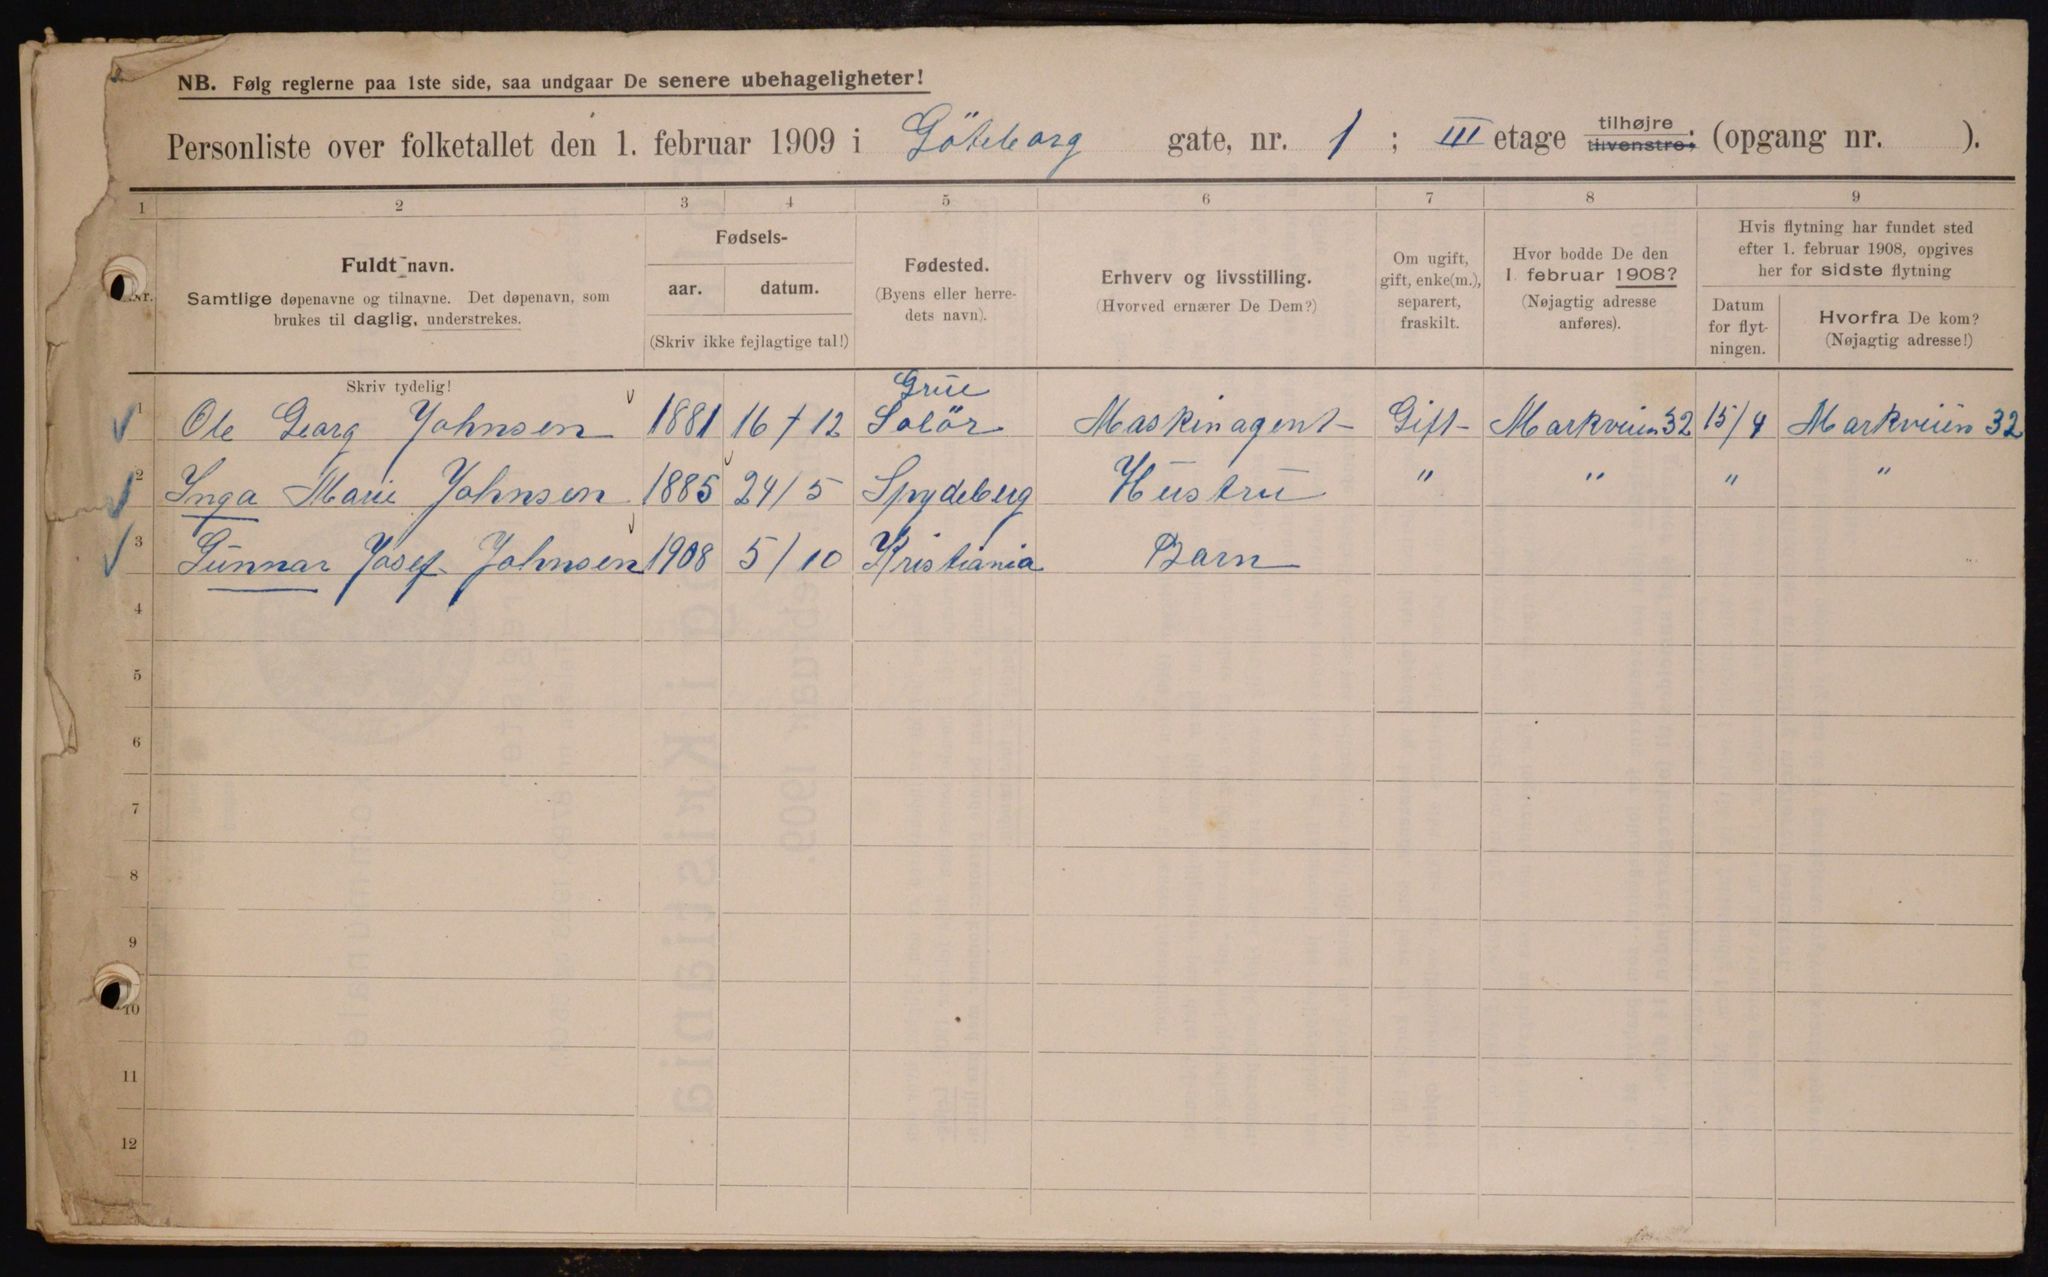 NB. Følg reglerne paa 1ste side, saa undgaar De senere ubehageligheter!
Personliste over folketallet den 1. februar 1909 i Göteborg gate, nr. 1 ; III etage tilhøjre tilvenstre; (opgang nr. ).
1 2 3 4 5 6 7 8 9
Nr.
Fuldt navn.
Samtlige døpenavne og tilnavne. Det døpenavn, som
brukes til daglig, understrekes.
Skriv tydelig!
Fødsels-
aar. datum.
(Skriv ikke fejlagtige tal!)
Fødested.
(Byens eller herre-
dets navn).
Erhverv og livsstilling.
(Hvorved ernærer De Dem?)
Om ugift,
gift, enke(m.),
separert,
fraskilt.
Hvor bodde De den
1. februar 1908?
(Nøjagtig adresse
anføres).
Hvis flytning har fundet sted
efter 1. februar 1908, opgives
her for sidste flytning
Datum
for flyt-
ningen.
Hvorfra De kom?
(Nøjagtig adresse!)
1 Ole Georg Johnsen 1881 16 + 12 Grue Solör Maskinagent Gift Markveien 32 15/4 Markveien 32
2 Inga Marie Johnsen 1885 24/5 Spydeberg Hustru " " " "
3 Gunnar Josef Johnsen 1908 5/10 Kristiania Barn
4
5
6
7
8
9
10
11
12